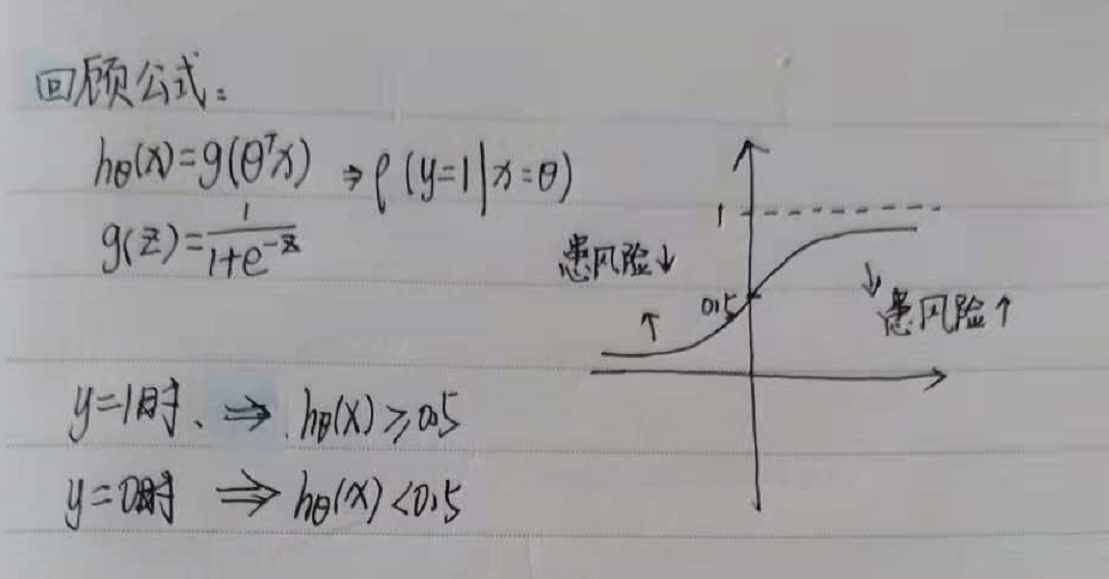 回顾公式:
hθ(x)=g(θᵀx) ⇒ P(y=1|x=θ)
g(z)=1/(1+e^-z)
1
患风险↓
0.5
患风险↑
y=1时、⇒ hθ(x)≥0.5
y=0时 ⇒ hθ(x)<0.5